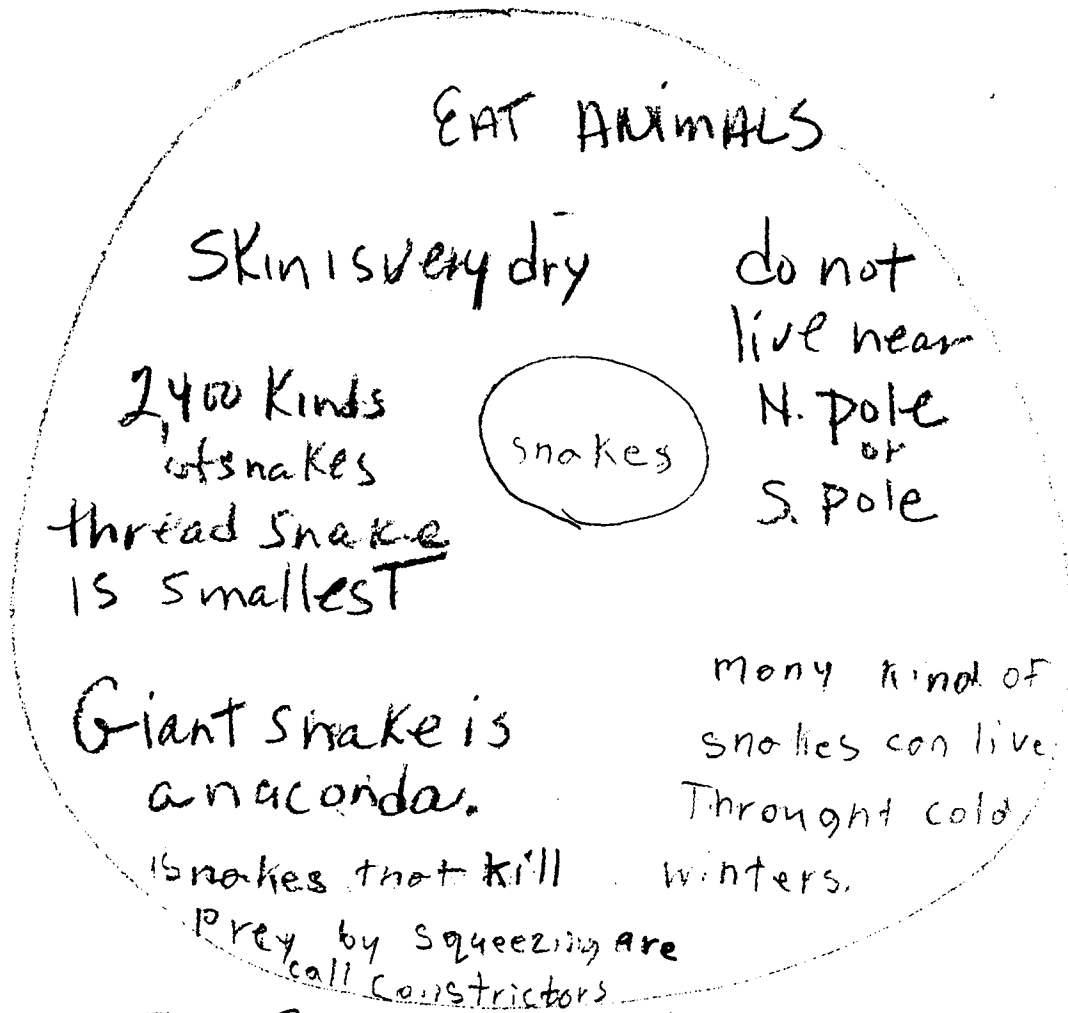 EAT ANimALS
Skin is very dry
do not
live near
N. pole
or
S. pole
2,400 Kinds
of snakes
thread snake
is smallesT
snakes
Giant snake is
anaconda.
many kind of
snakes can live
Throught cold
winters.
snakes that kill
Prey by squeezing are
call constrictors